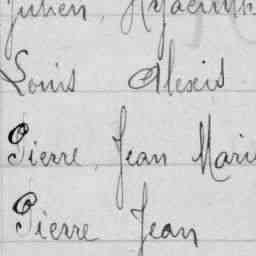 Julien, Hyacinth
Louis Alexis
Pierre, Jean Marie
Pierre Jean